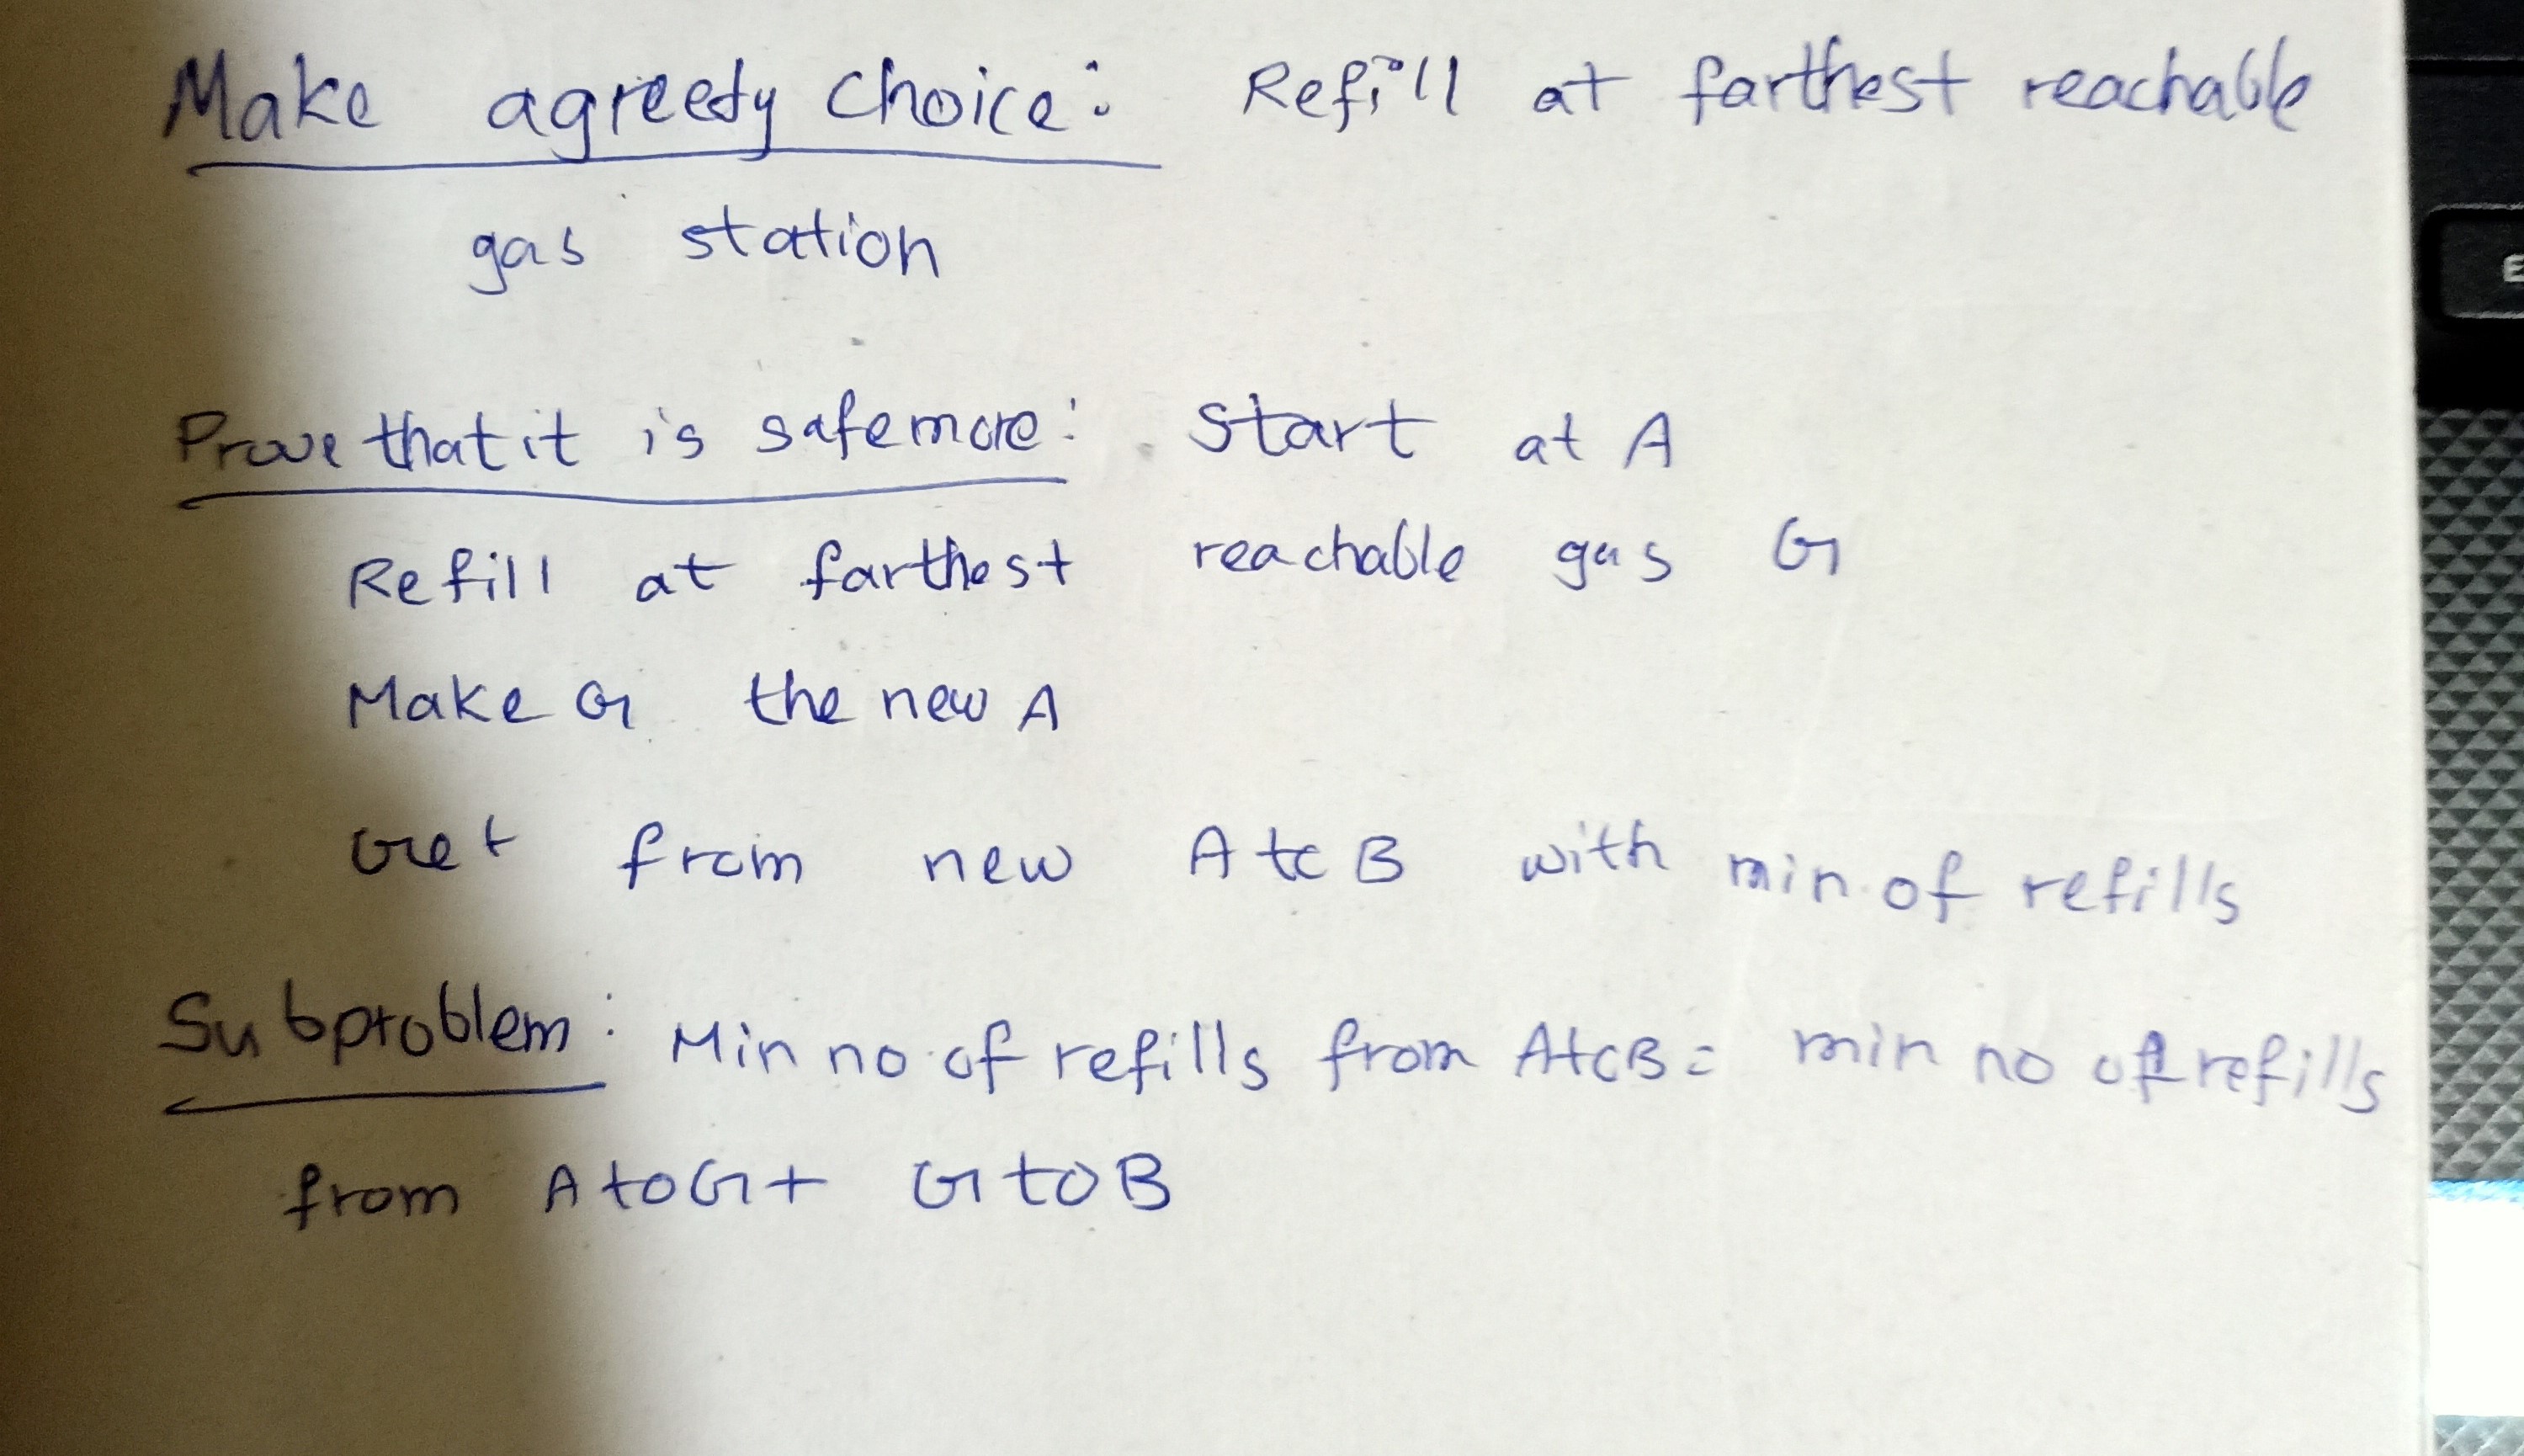 Make agreedy choice: Refill at farthest reachable
gas station
Prove that it is safemove: Start at A
Refill at farthest reachable gas G
Make G the new A
Get from new A to B with min. of refills
Subproblem: Min no. of refills from A to B = min no of refills
from A to G + G to B
E